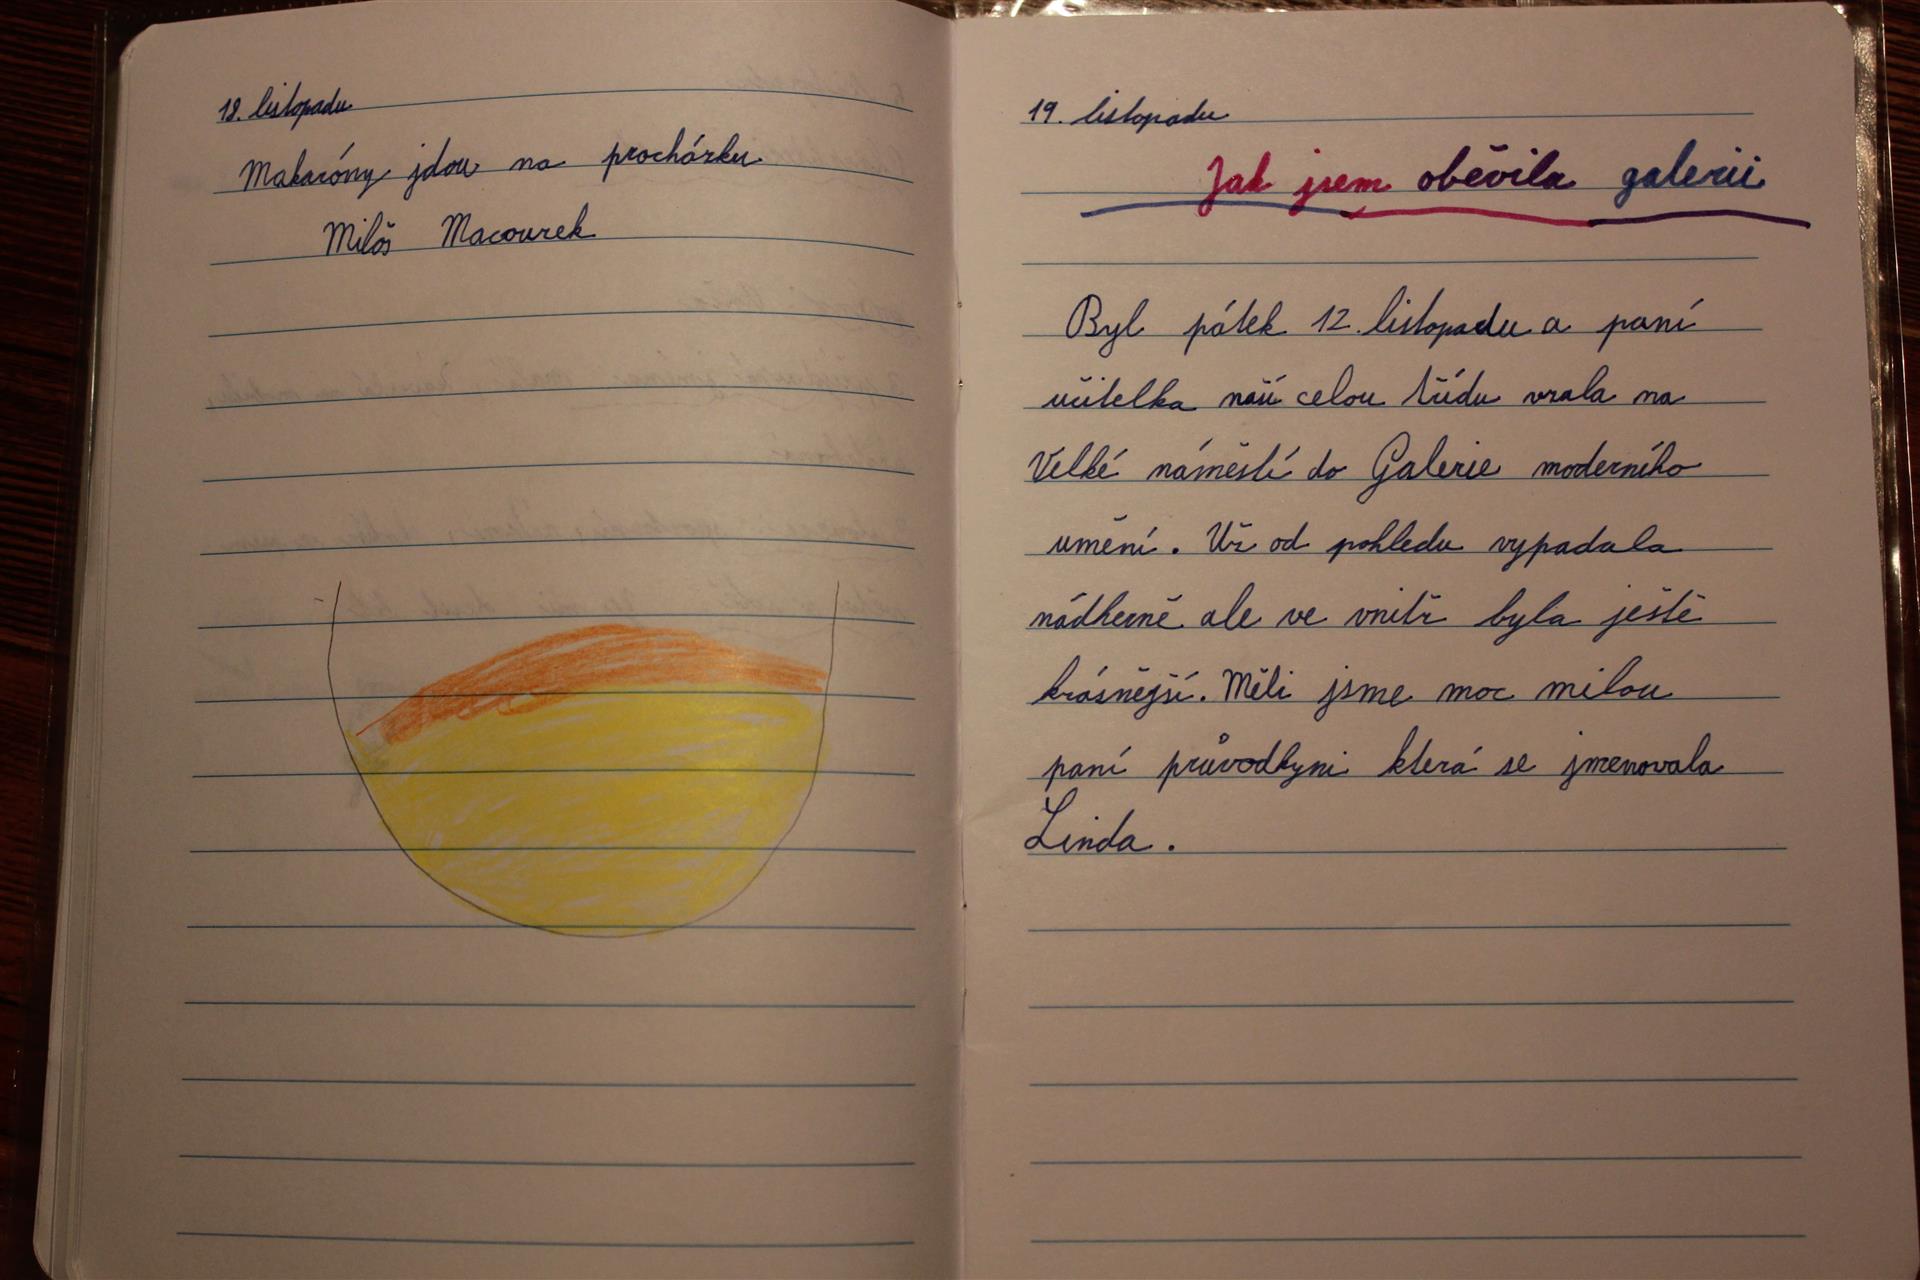 18. listopadu
Makaróny jdou na procházku
Miloš Macourek
19. listopadu
Jak jsem oběvila galerii
Byl pátek 12. listopadu a paní
učitelka naší celou třídu vzala na
Velké náměstí do Galerie moderního
umění. Už od pohledu vypadala
nádherně ale ve vnitř byla ještě
krásnější. Měli jsme moc milou
paní průvodkyni která se jmenovala
Linda.